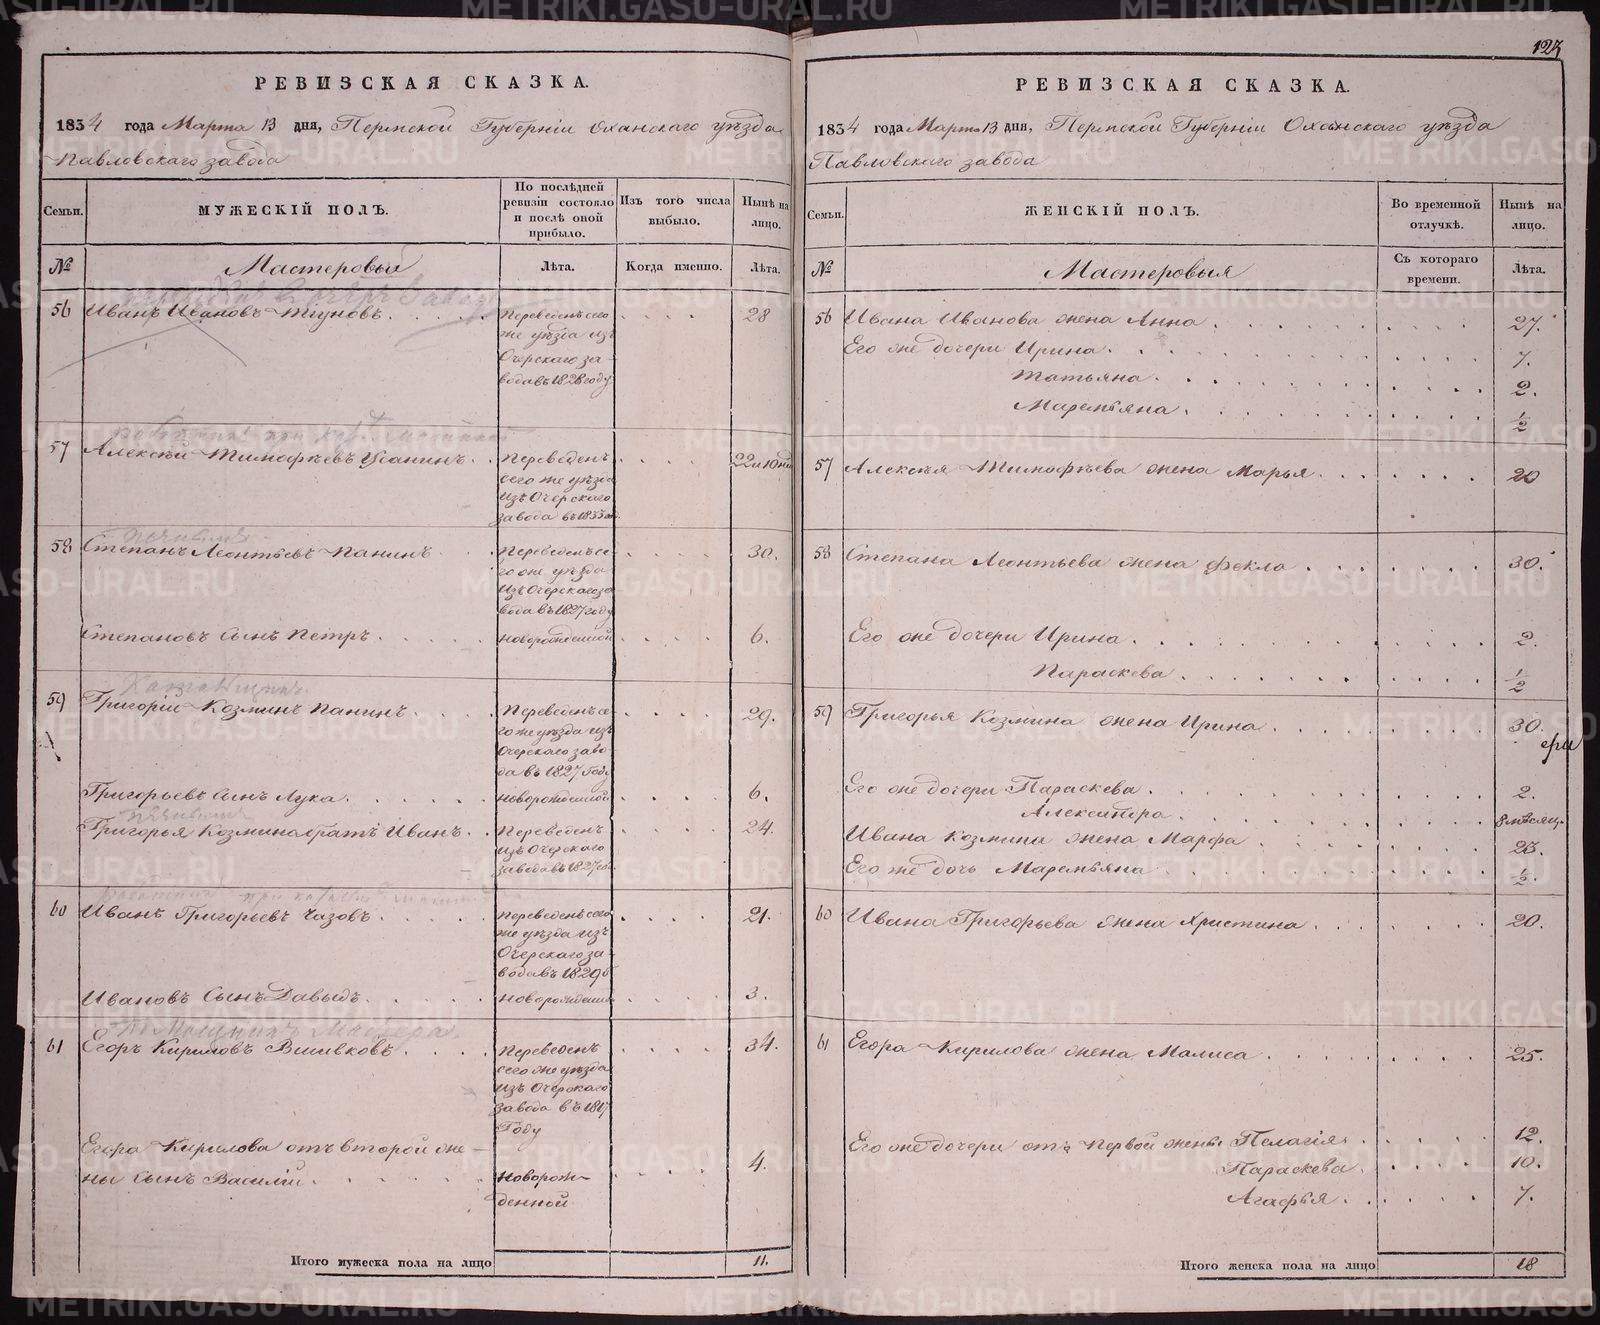 РЕВИЗСКАЯ СКАЗКА.
1834 года Марта 13 дня, Пермской Губернiи Оханскаго уѣзда
Павловскаго завода
Семьи.
МУЖЕСКІЙ ПОЛЪ.
По послѣдней ревизіи состояло и послѣ оной прибыло.
Изъ того числа выбыло.
Нынѣ на лицо.
№
Мастеровыя
Лѣта.
Когда именно.
Лѣта.
56 Иванъ Ивановъ Тіуновъ . . . . . Переведенъ сего . . . . 28
же уѣзда изъ
Очерскаго за-
вода въ 1828 году
57 Алексѣй Тимофѣевъ Усанинъ . . Переведенъ . . . . 22
сего же уѣзда
изъ Очерскаго
завода въ 1833
58 Степанъ Леонтьевъ Панинъ . . Переведенъ се- . . . . 30.
го же уѣзда
изъ Очерскаго за
вода въ 1827 году
Степановъ сынъ Петръ . . . . . новорожденной . . . . 6.
59 Григорій Козминъ Панинъ . . . . Переведенъ се- . . . . 29.
го же уѣзда изъ
Очерскаго заво-
да въ 1827 году
Григорьевъ сынъ Лука . . . . . новорожденной . . . . 6.
Григорья Козмина братъ Иванъ . . Переведенъ . . . . 24.
изъ Очерскаго
завода въ 1827 го.
60 Иванъ Григорьевъ Чазовъ . . . . . Переведенъ сего . . . . 21.
же уѣзда изъ
Очерскаго за-
вода въ 1829
Ивановъ сынъ Давыдъ . . . . . новорожденн . . . . 3.
Помощникъ Мастера.
61 Егоръ Кириловъ Вшивковъ . . . . Переведенъ . . . . 34.
сего же уѣзда
изъ Очерскаго
завода въ 1817
Году
Егора Кирилова отъ второй же-
ны сынъ Василій . . . . . . Новорож- . . . . 4.
денной
Итого мужеска пола на лицо 11.
123
РЕВИЗСКАЯ СКАЗКА.
1834 года Марта 13 дня, Пермской Губернiи Оханскаго уѣзда
Павловскаго завода
Семьи.
ЖЕНСКІЙ ПОЛЪ.
Во временной отлучкѣ.
Нынѣ на лицо.
№
Мастеровыя
Съ котораго времени.
Лѣта.
56 Ивана Иванова жена Анна . . . . . . . 27.
Его же дочери Ирина . . . . . . . 7.
Татьяна . . . . . . . 2.
Маремьяна . . . . . . . ½
57 Алексѣя Тимофѣева жена Марья . . . . . . 20
58 Степана Леонтьева жена Фекла . . . . . . 30.
Его же дочери Ирина . . . . . . . 2.
Параскева . . . . . . . ½
59 Григорья Козмина жена Ирина . . . . . . . 30.
Его же дочери Параскева . . . . . . . 2.
Александра . . . . . . . 8 мѣсяц.
Ивана Козмина жена Марфа . . . . . . . 23.
Его же дочь Маремьяна . . . . . . . ½.
60 Ивана Григорьева жена Христина . . . . . . 20.
61 Егора Кирилова жена Малиса . . . . . . . 25.
Его же дочери отъ первой жены Пелагія . . . . . 12.
Параскева . . . . . 10.
Агафья . . . . . 7.
Итого женска пола на лицо 18
METRIKI.GASO-URAL.RU